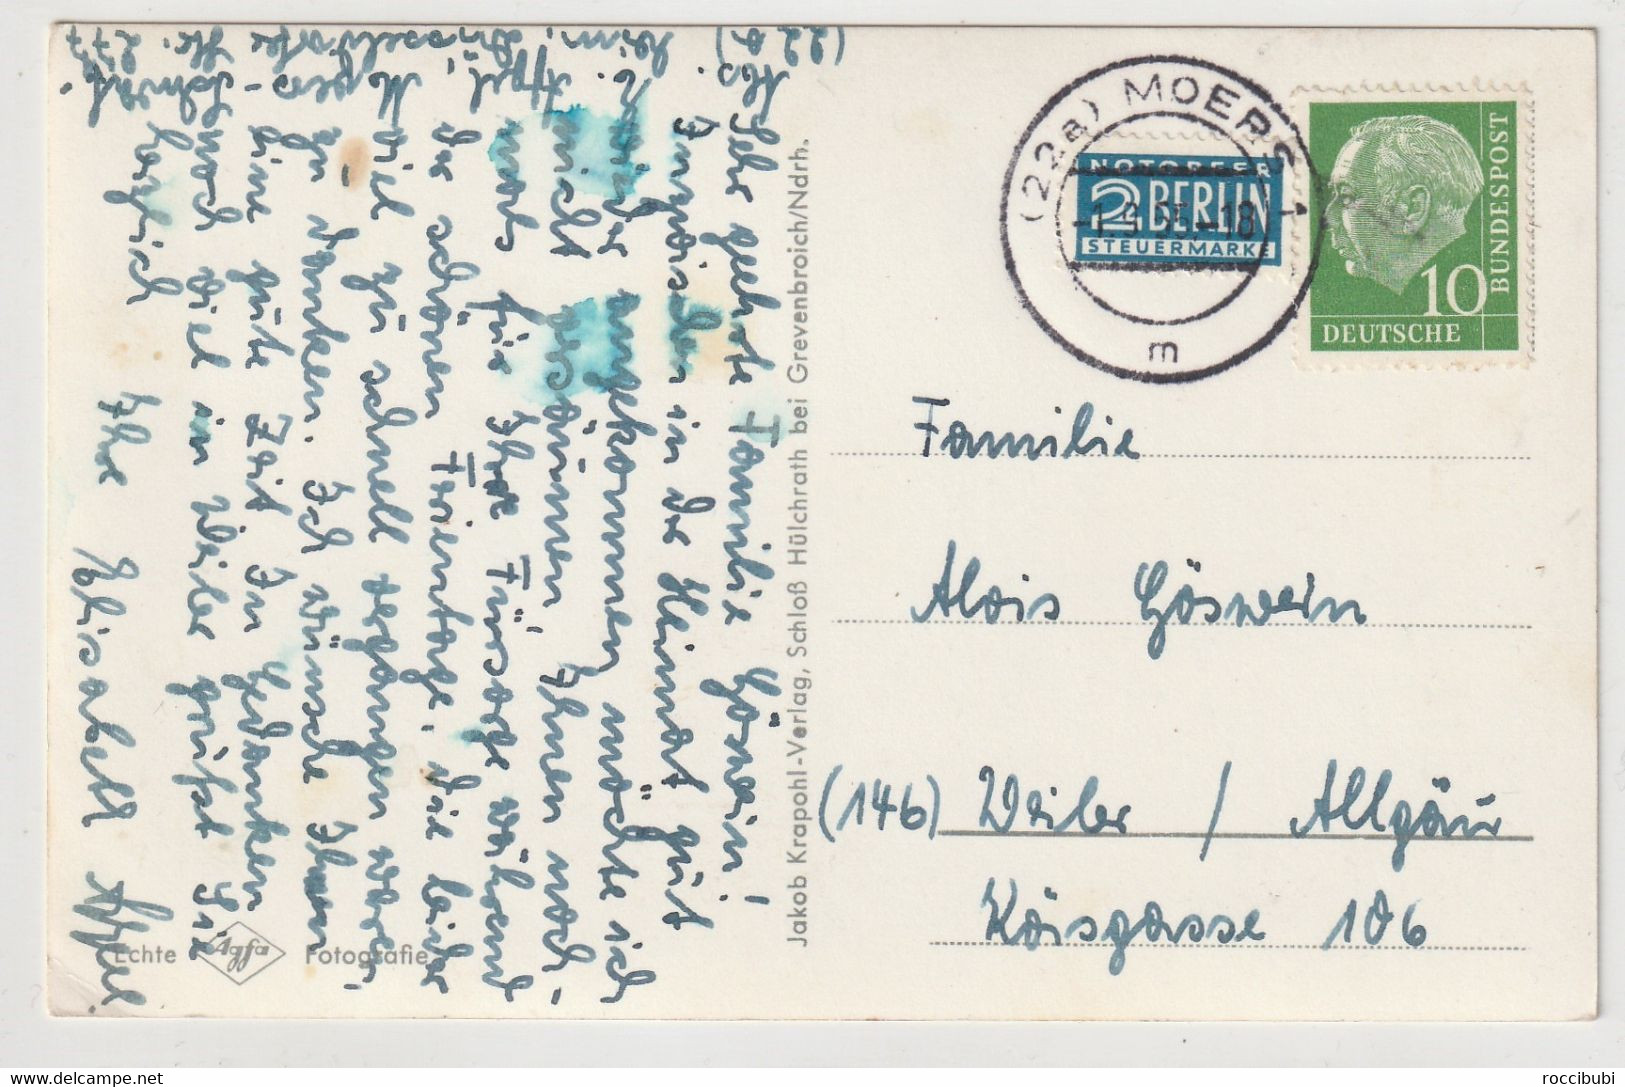 (22a) MOERS 1
-1.9.55.-18
m
NOTOPFER
2 BERLIN
STEUERMARKE
DEUTSCHE
BUNDESPOST
10
Familie
Alois Göswein
(14b) Weiler / Allgäu
106
Jakob Krapohl-Verlag, Schloß Hülchrath bei Grevenbroich/Ndrh.
Echte Agfa Fotografie
(22a)
Sehr geehrte Familie Göswein!
Inzwischen in der Heimat gut
wieder angekommen möchte ich
nicht versäumen, Ihnen noch-
mals für Ihre Fürsorge während
der schönen Ferientage, die leider
viel zu schnell vergangen waren
zu danken. Ich wünsche Ihnen
eine gute Zeit. In Gedanken
noch viel in Weiler grüßt Sie
herzlich Ihre Elisabeth Appel
roccibubi / Delcampe.net